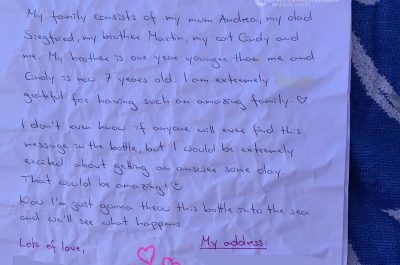 My family consists of my mum Andrea, my dad
Siegfried, my brother Martin, my cat Cindy and
me. My brother is one year younger than me and
Cindy is now 7 years old. I am extremely
grateful for having such an amazing family. ♡
I don't even know if anyone will ever find this
message in the bottle, but I would be extremely
excited about getting an answer some day.
That would be amazing! :)
Now I'm just gonna throw this bottle into the sea
and we'll see what happens.
Lots of love,
My address: